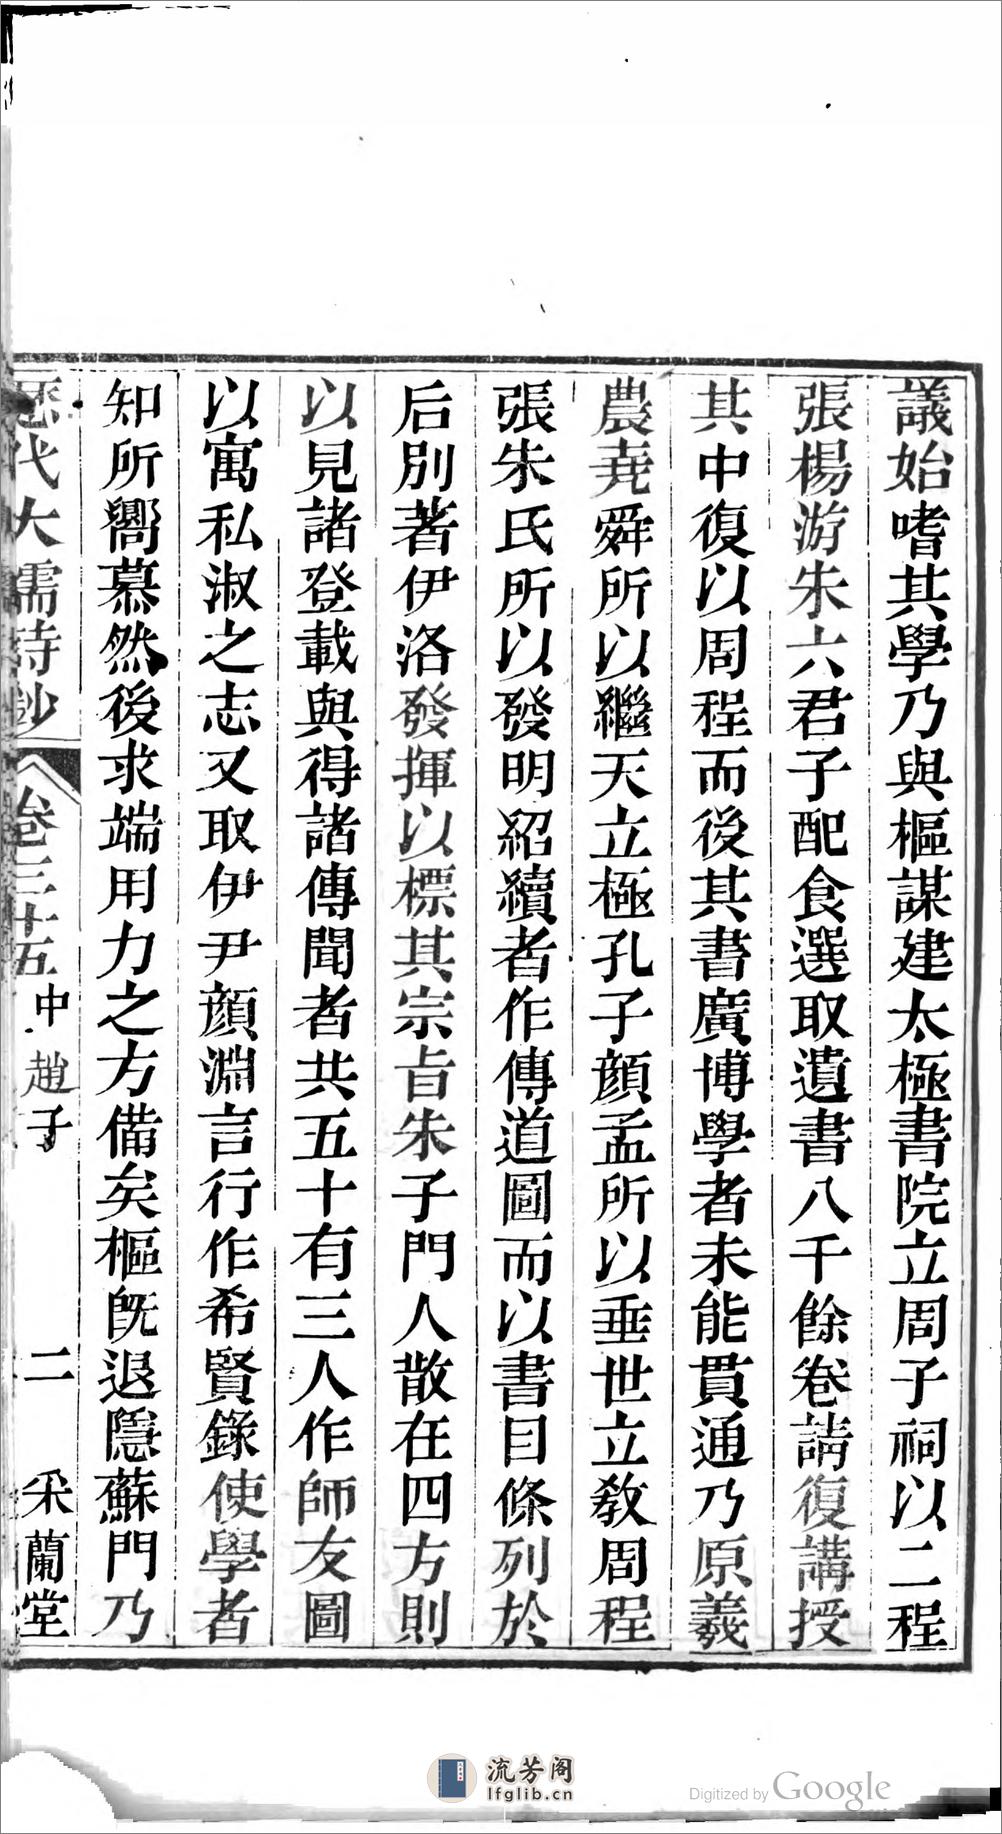 議始嗜其學乃與樞謀建太極書院立周子祠以二程
張楊游朱六君子配食選取遺書八千餘卷請復講授
其中復以周程而後其書廣博學者未能貫通乃原羲
農堯舜所以繼天立極孔子顏孟所以垂世立教周程
張朱氏所以發明紹續者作傳道圖而以書目條列於
后別著伊洛發揮以標其宗旨朱子門人散在四方則
以見諸登載與得諸傳聞者共五十有三人作師友圖
以寓私淑之志又取伊尹顏淵言行作希賢錄使學者
知所嚮慕然後求端用力之方備矣樞既退隱蘇門乃
歷代大儒詩鈔 卷三十五 中 趙子 二 采蘭堂
流芳阁
lfglib.cn
Digitized by Google